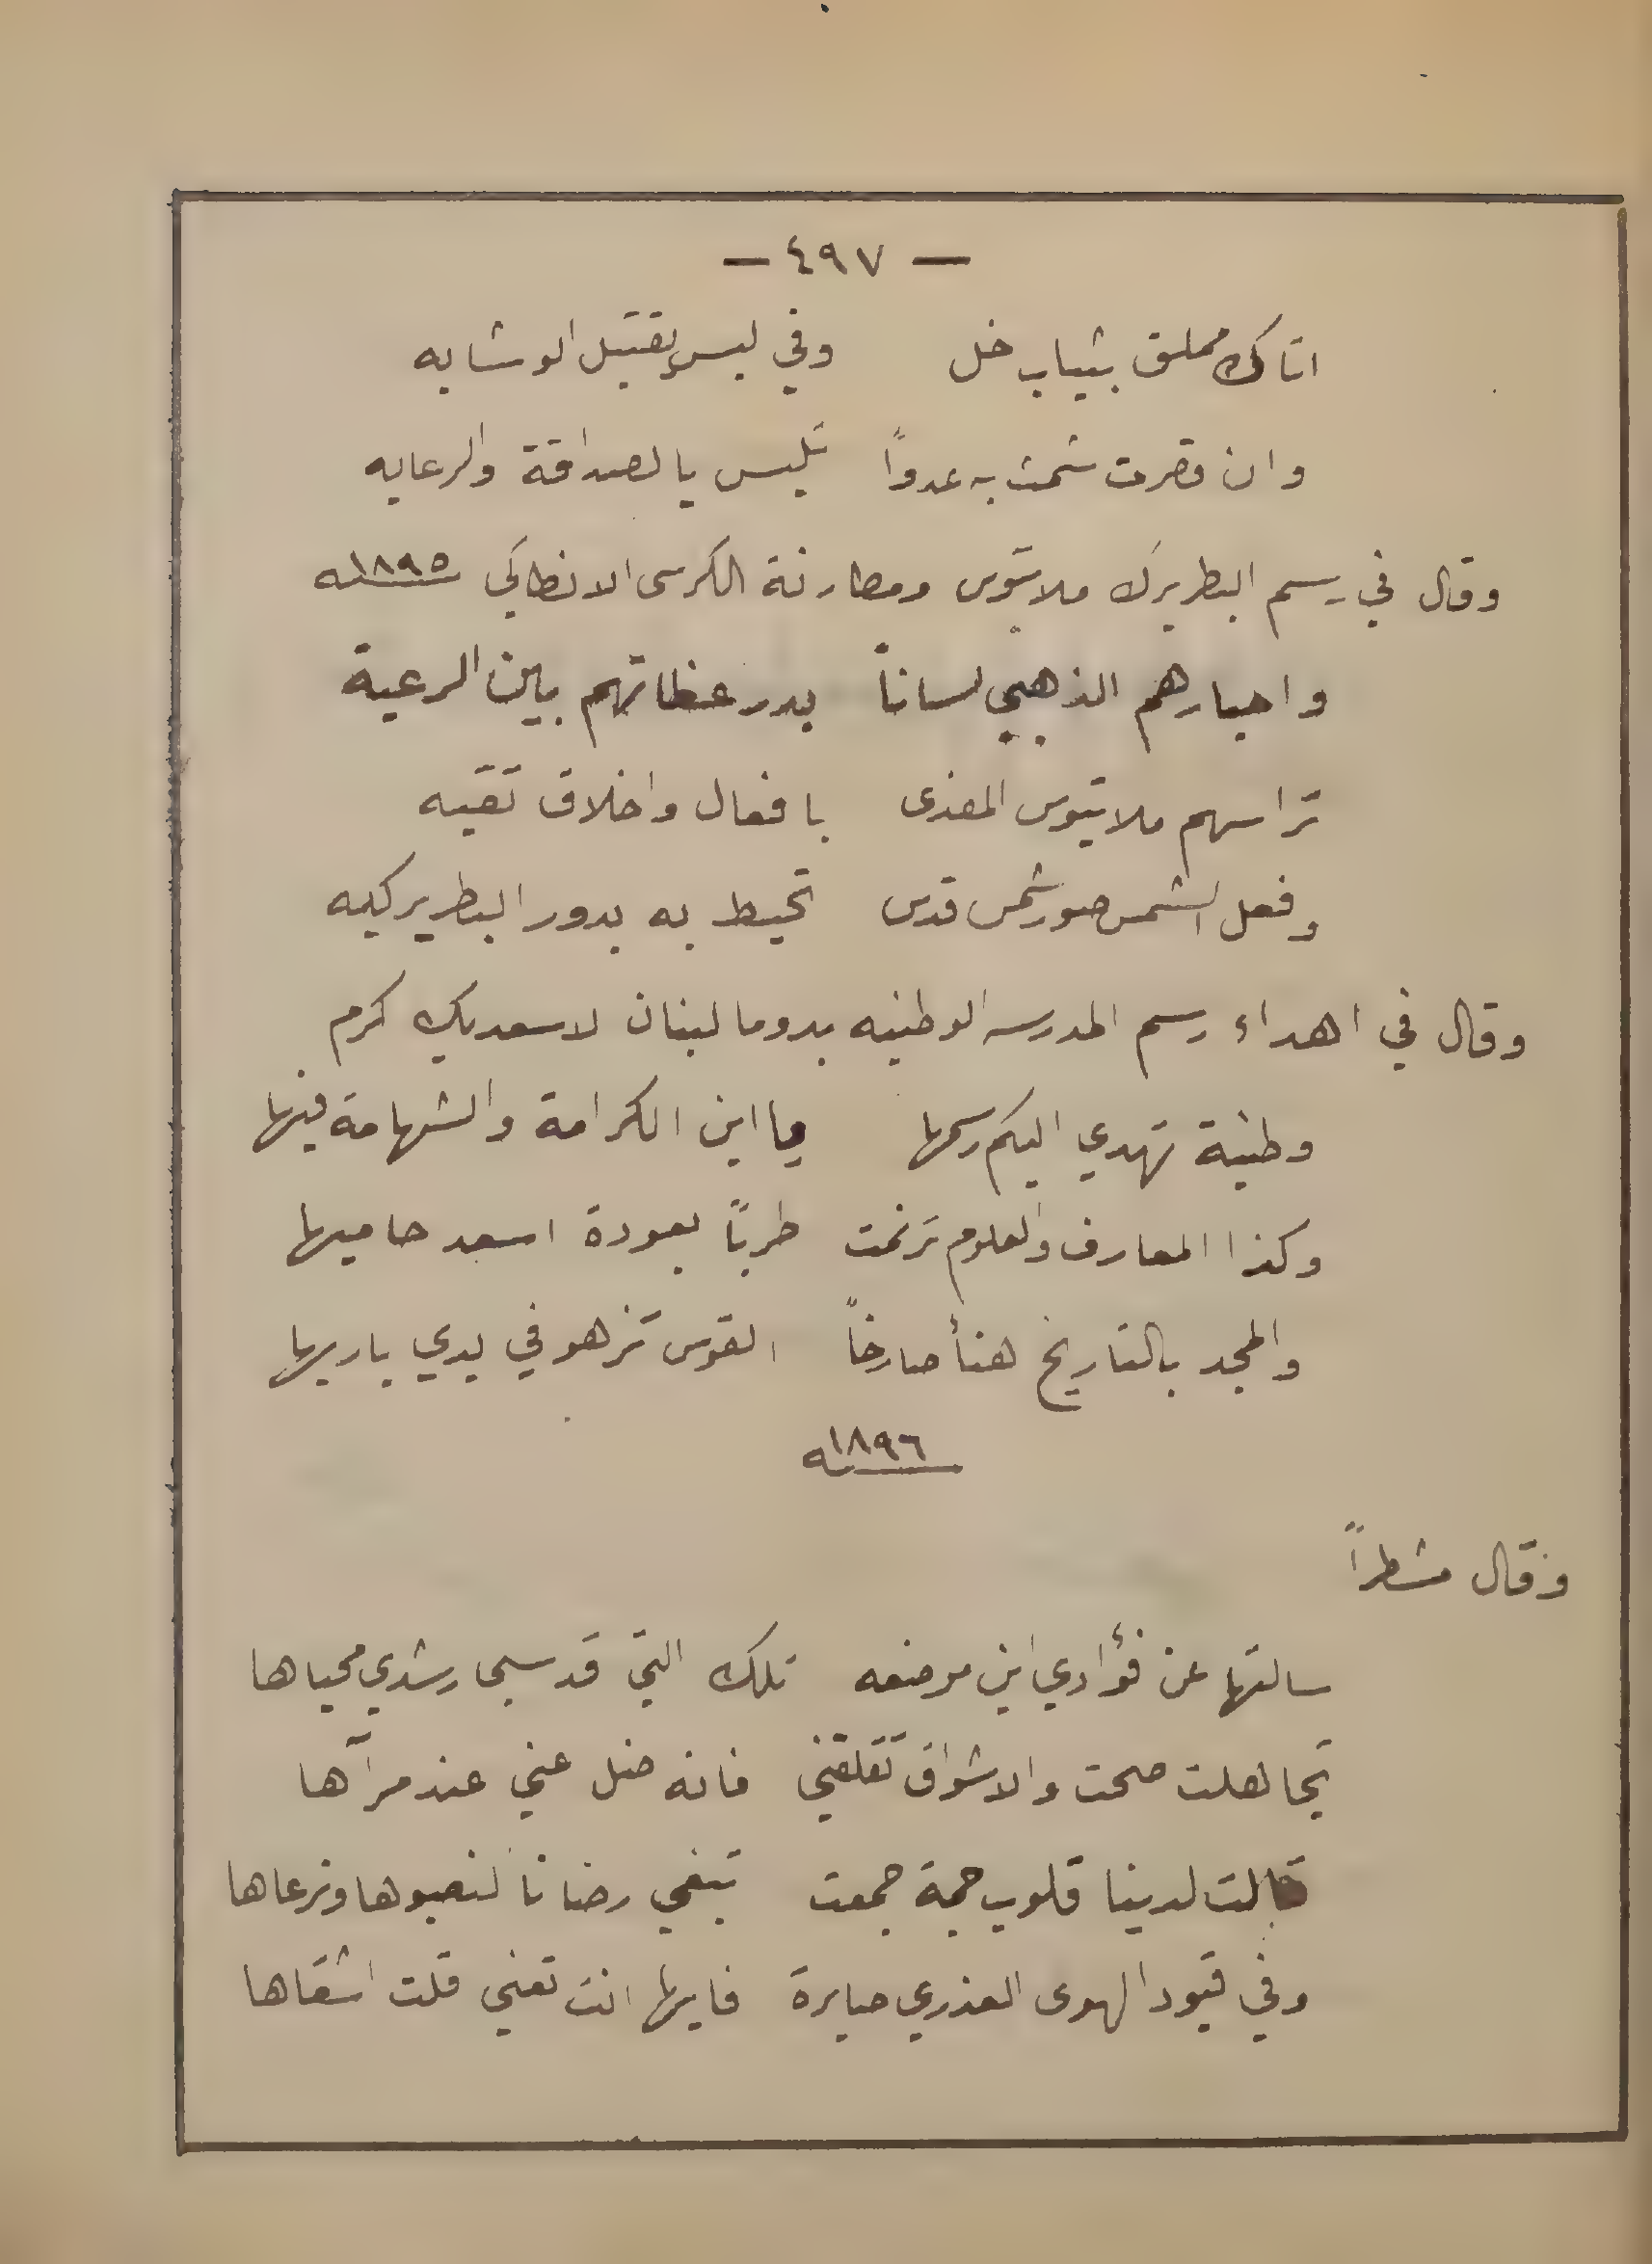 — ٤٩٧ —
اتاك مملق بثياب خل وفي ليس يقتبل الوشايه
وان قصرت شمت به عدواً تلبس بالصداقة والرعايه
وقال في رسم البطريرك ملاتيوس ومطارنة الكرسى الانطاكي ١٨٩٥ـه
واحبارهم الذهبي لساناً بدر عظاتهم بين الرعية
تراسهم ملاتيوس المفدى بافعال واخلاق تقيه
وفعل الشمس صور شمس قدس تحيط به بدور البطريركيه
وقال في اهداء رسم المدرسه الوطنيه بدوما لبنان لاسعد بك كرم
وطنية تهدي اليكم رسمها يا ابن الكرامة والشهامة فيها
وكذا المعارف والعلوم ترنمت طرباً بعودة اسعد حاميها
والمجد بالتاريخ هنأ صارخاً القوس تزهو في يدي باريها
١٨٩٦ـه
وقال مشطراً
سالتها عن فؤادي اين موضعه تلك التي قد سبى رشدي محياها
تجاهلت صحت والاشواق تقلقني فانه ضل عني عند مرآها
قالت لدينا قلوب جمة جمعت تبغي رضانا لنصبوها ونرعاها
وفي قيود الهوى العذري صابرة فايها انت تعني قلت اشقاها